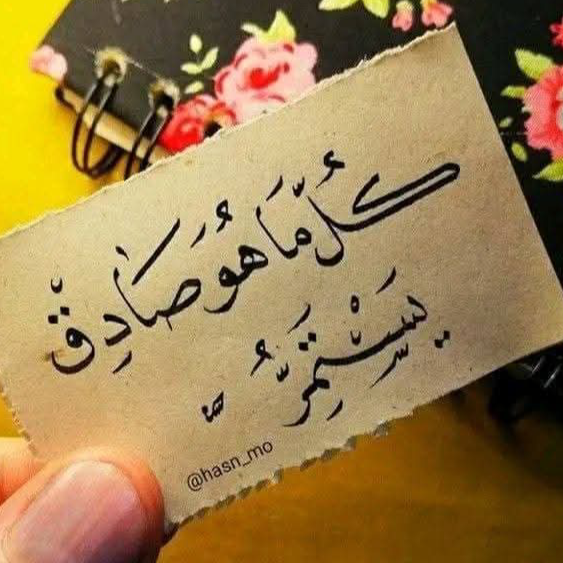 كُلُّ مَا هُوَ صَادِقْ
يَسْتَمِرُّ
@hasn_mo